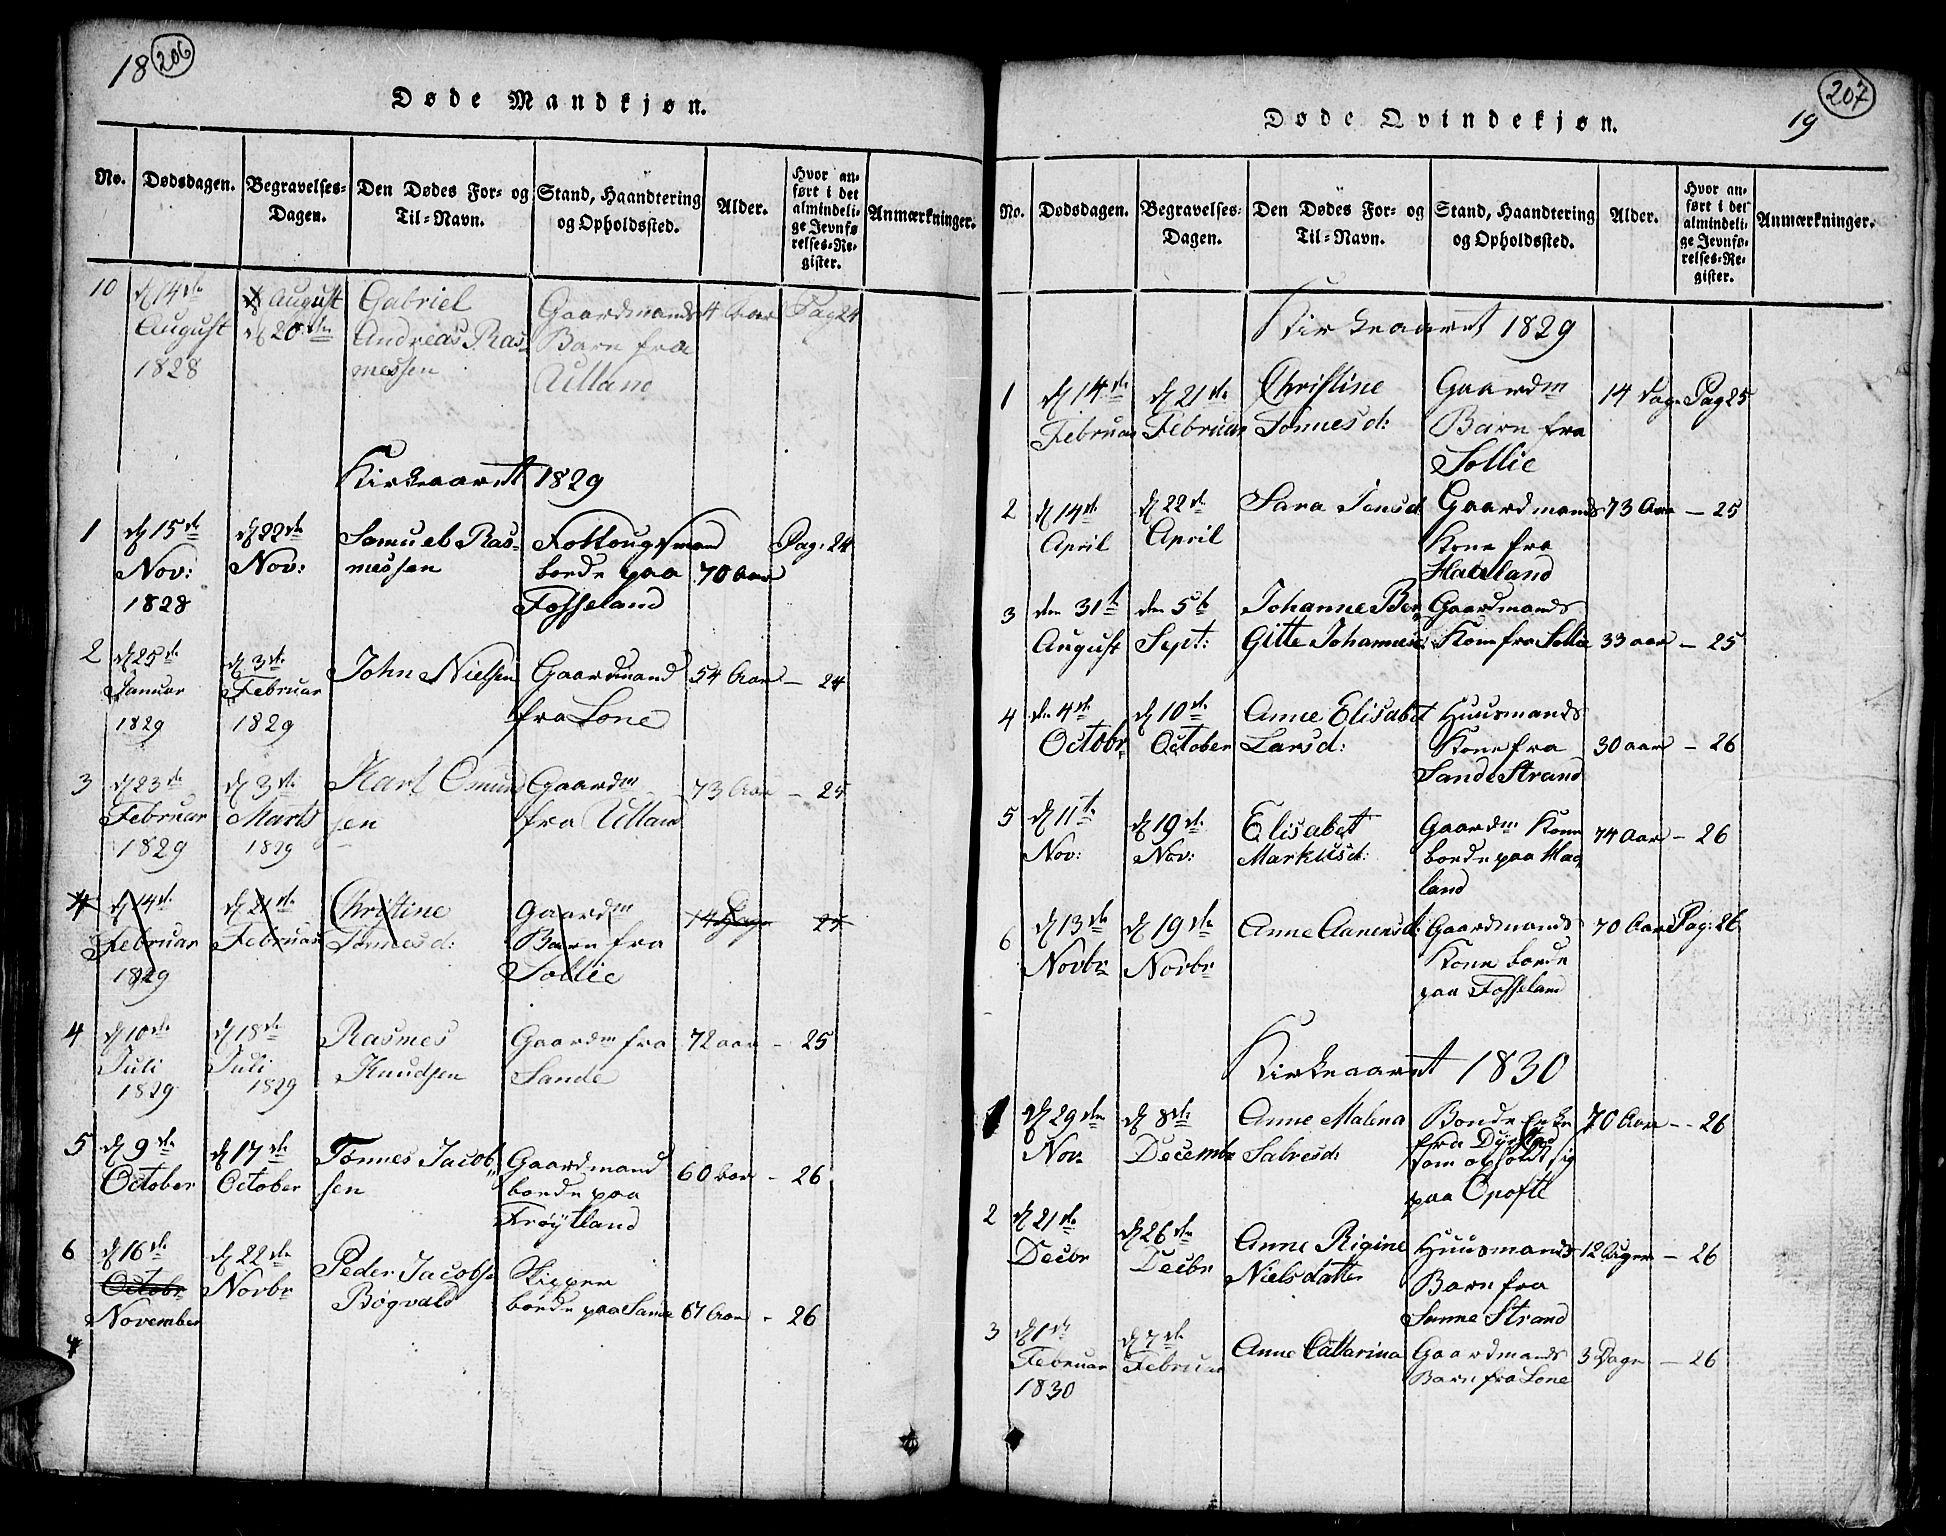 18 206
Døde Mandkjøn.
No. Dødsdagen. Begravelses-Dagen. Den Dødes For- og Til-Navn. Stand, Haandtering og Opholdssted. Alder. Hvor anført i det almindelige Jevnførelses-Register. Anmærkninger.
10 d 14de August Gabriel Gaardmands 4 Aar Pag 24
August d 20de Andreas Ras- Barn fra
1828 messen Ulland
Kirkeaaret 1829
1 d 15de d 22de Samuel Ras- Follougsmand Pag: 24
Nov: Nov: messen boede paa 70 Aar
1828 Fosseland
2 d 25de d 3de John Nielsen Gaardmand 54 Aar - 24
Januar Februar fra Lone
1829 1829
3 d 23de d 3de Karl Omund Gaardm 73 Aar - 25
Februar Marts sen fra Ulland
1829 1829
4 d 14de d 21de Christine Gaardm 14 Dage 25
Februar Februar Tønnesd: Barn fra
1829 Sollie
4 d 10de d 18de Rasmes Gaardm fra 72 aar - 25
Juli Juli Knudsen Sande
1829 1829
5 d 9de d 17de Tønnes Jacob Gaardmand 60 Aar - 26
October October sen boede paa
Frøytland
6 d 16de d 22de Peder Jacobse Skipper
Octobr Novbr Bøgvald boede paa Sande 67 Aar - 26
November
7
207
19
Døde Qvindekjøn.
No. Dødsdagen. Begravelses-Dagen. Den Dødes For- og Til-Navn. Stand, Haandtering og Opholdssted. Alder. Hvor anført i det almindelige Jevnførelses-Register. Anmærkninger.
Kirkeaaret 1829
1 d 14de d 21de Christine Gaardm 14 Dage Pag 25
Februar Februar Tønnesd: Barn fra
Sollie
2 d 14de d 22de Sara Jensd Gaardmands 73 Aar - 25
April April Kone fra
Haaland
3 den 31te den 5te Johanne Ber Gaardmands
August Sept: Gitte Johannesd: Kone fra Sollie 33 aar - 25
4 den 4de d 10de Anne Elisabet Huusmands
Octobr October Larsd: Kone fra 30 aar - 26
Sande Strand
5 d 11te d 19de Elisabet Gaardm Kone 74 Aar - 26
Nov: Nov: Markusd: boede paa Hau
land
6 d 13de d 19de Anne Aanensd: Gaardmands 70 Aar Pag: 26
Novbr Novbr Kone boede
paa Fosseland
Kirkeaaret 1830
1 d 29de d 8de Anne Malena Bonde Enke 70 Aar - 26
Nov. Decembr Salvesd: fra
som opholdt sig
paa Opofte
2 d 21de d 26de Anne Rigine Huusmands 12 Uger - 26
Decbr Decbr Nielsdatter Barn fra
Sunne Strand
3 d 1de d 7de Anne Cattarina Gaardmands 3 Dage - 26
Februar Februar Barn fra Lone
1830